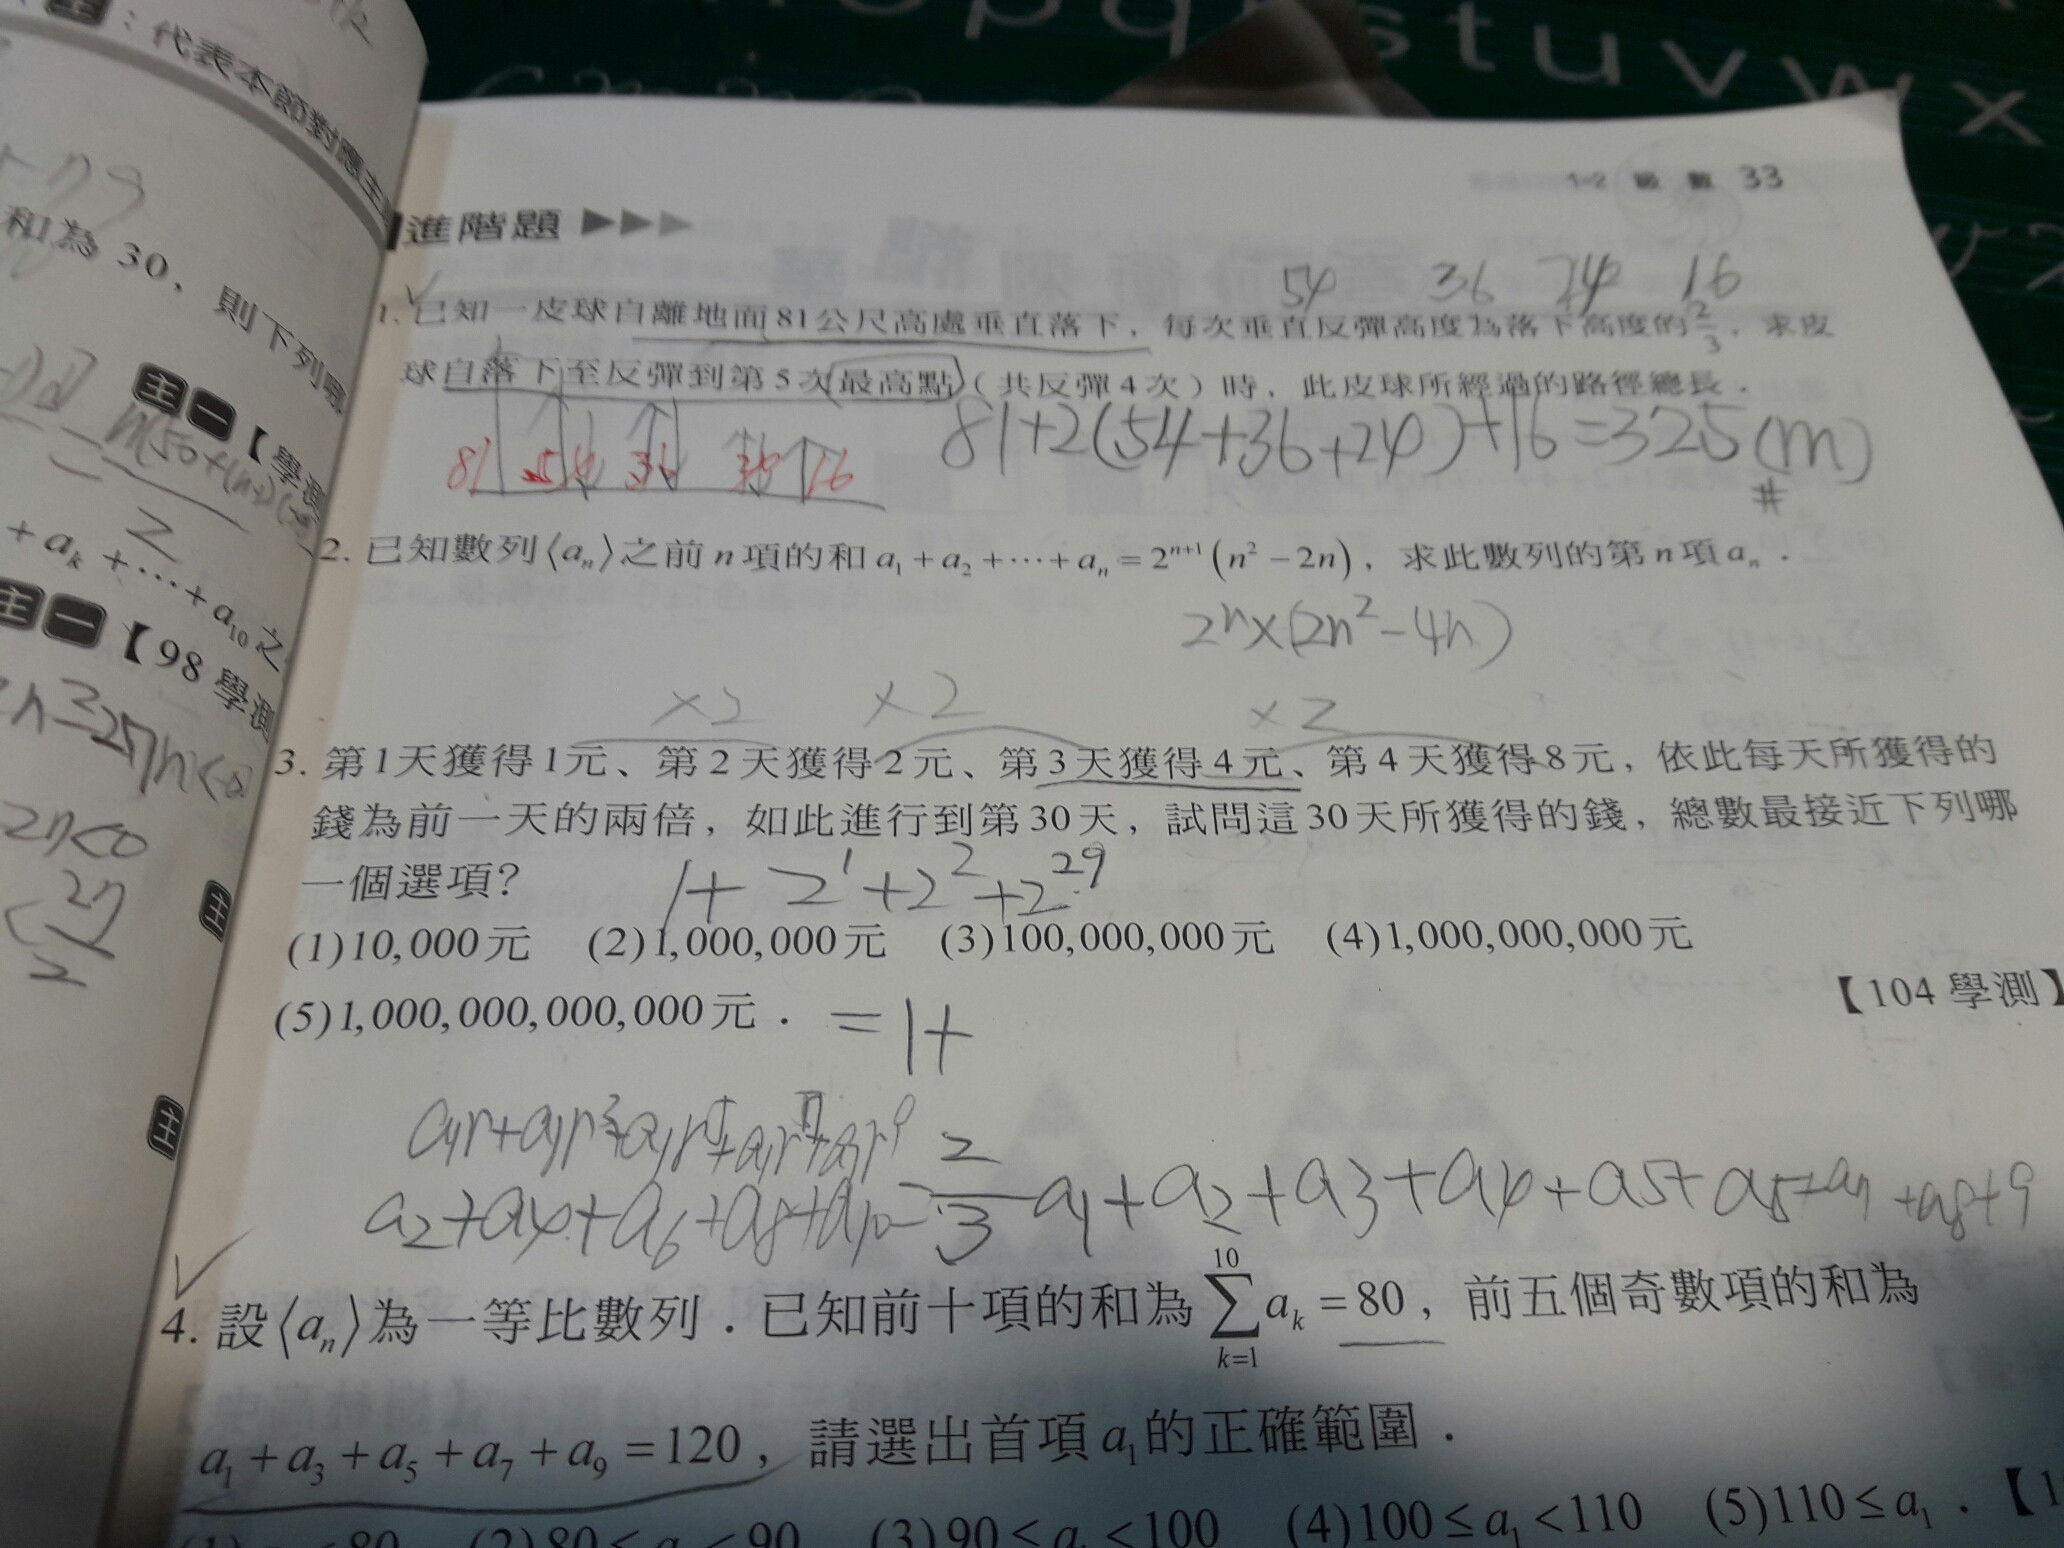 stuvwx
：代表本節對應主
和為 30，則下列哪
主一【學測
+ aₖ + ⋯ + a₁₀ 之
主一【98 學測
2n<0
主
主
1-2 級數 33
進階題 ▶▶▶
54 36 24 16
1. 已知一皮球自離地面 81 公尺高處垂直落下，每次垂直反彈高度為落下高度的 2/3．求皮
球自落下至反彈到第 5 次最高點（共反彈 4 次）時，此皮球所經過的路徑總長．
81 54 36 16
81+2(54+36+24)+16=325(m)
#
2. 已知數列⟨aₙ⟩之前 n 項的和 a₁ + a₂ + ⋯ + aₙ = 2ⁿ⁺¹(n² − 2n)，求此數列的第 n 項 aₙ．
2ⁿ×(2n²−4n)
×2 ×2 ×2
3. 第1天獲得1元、第2天獲得2元、第3天獲得4元、第4天獲得8元，依此每天所獲得的
錢為前一天的兩倍，如此進行到第30天，試問這30天所獲得的錢，總數最接近下列哪
一個選項？
1+2¹+2²+2²⁹
(1)10,000元 (2)1,000,000元 (3)100,000,000元 (4)1,000,000,000元
【104 學測】
(5)1,000,000,000,000元．
=1+
a₂+a₄+a₆+a₈+a₁₀=2/3 a₁+a₂+a₃+a₄+a₅+
4. 設⟨aₙ⟩為一等比數列．已知前十項的和為 ∑(k=1→10) aₖ = 80，前五個奇數項的和為
a₁ + a₃ + a₅ + a₇ + a₉ = 120，請選出首項 a₁ 的正確範圍．
(2)80≤a₁<90 (3)90≤a₁<100 (4)100≤a₁<110 (5)110≤a₁．【1